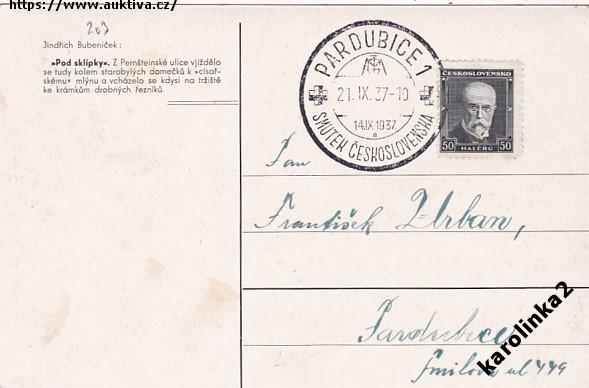 https://www.auktiva.cz/
203
Jindřich Bubeníček:
»Pod sklípky«. Z Pernšteinské ulice vjíždělo
se tudy kolem starobylých domečků k »císař-
skému« mlýnu a vcházelo se kdysi na tržiště
ke krámkům drobných řezníků.
PARDUBICE 1
21.IX.37-10
14.IX.1937.
a
SMUTEK ČESKOSLOVENSKA
ČESKOSLOVENSKO
50 HALÉŘŮ 50
Pan
František Urban,
Pardubice
Smilova ul 449
karolinka2